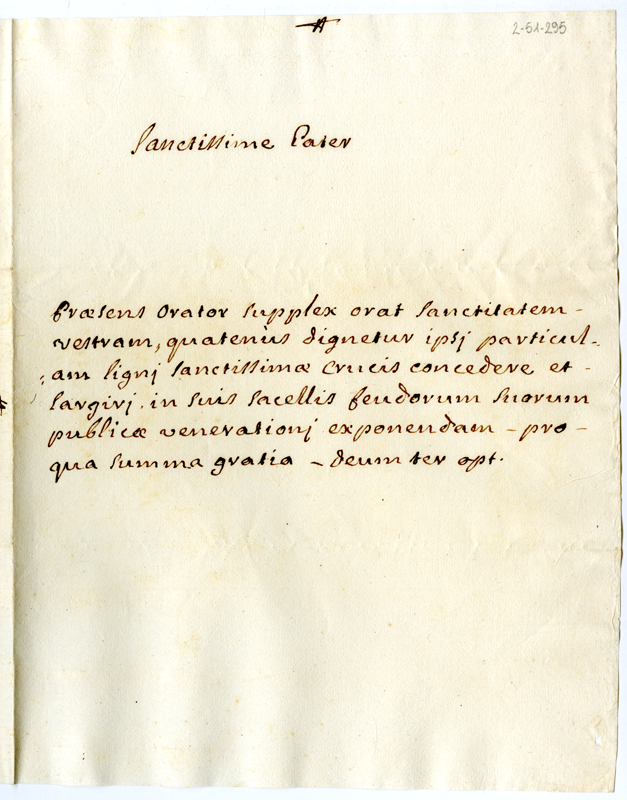 2-51-295
Sanctissime Pater
Præsens Orator supplex orat Sanctitatem-
vestram, quatenus dignetur ipsj particul-
am lignj Sanctissimæ Crucis concedere et-
largirj, in suis sacellis feudorum suorum
publicæ venerationj exponendam - pro-
qua summa gratia - deum ter opt.